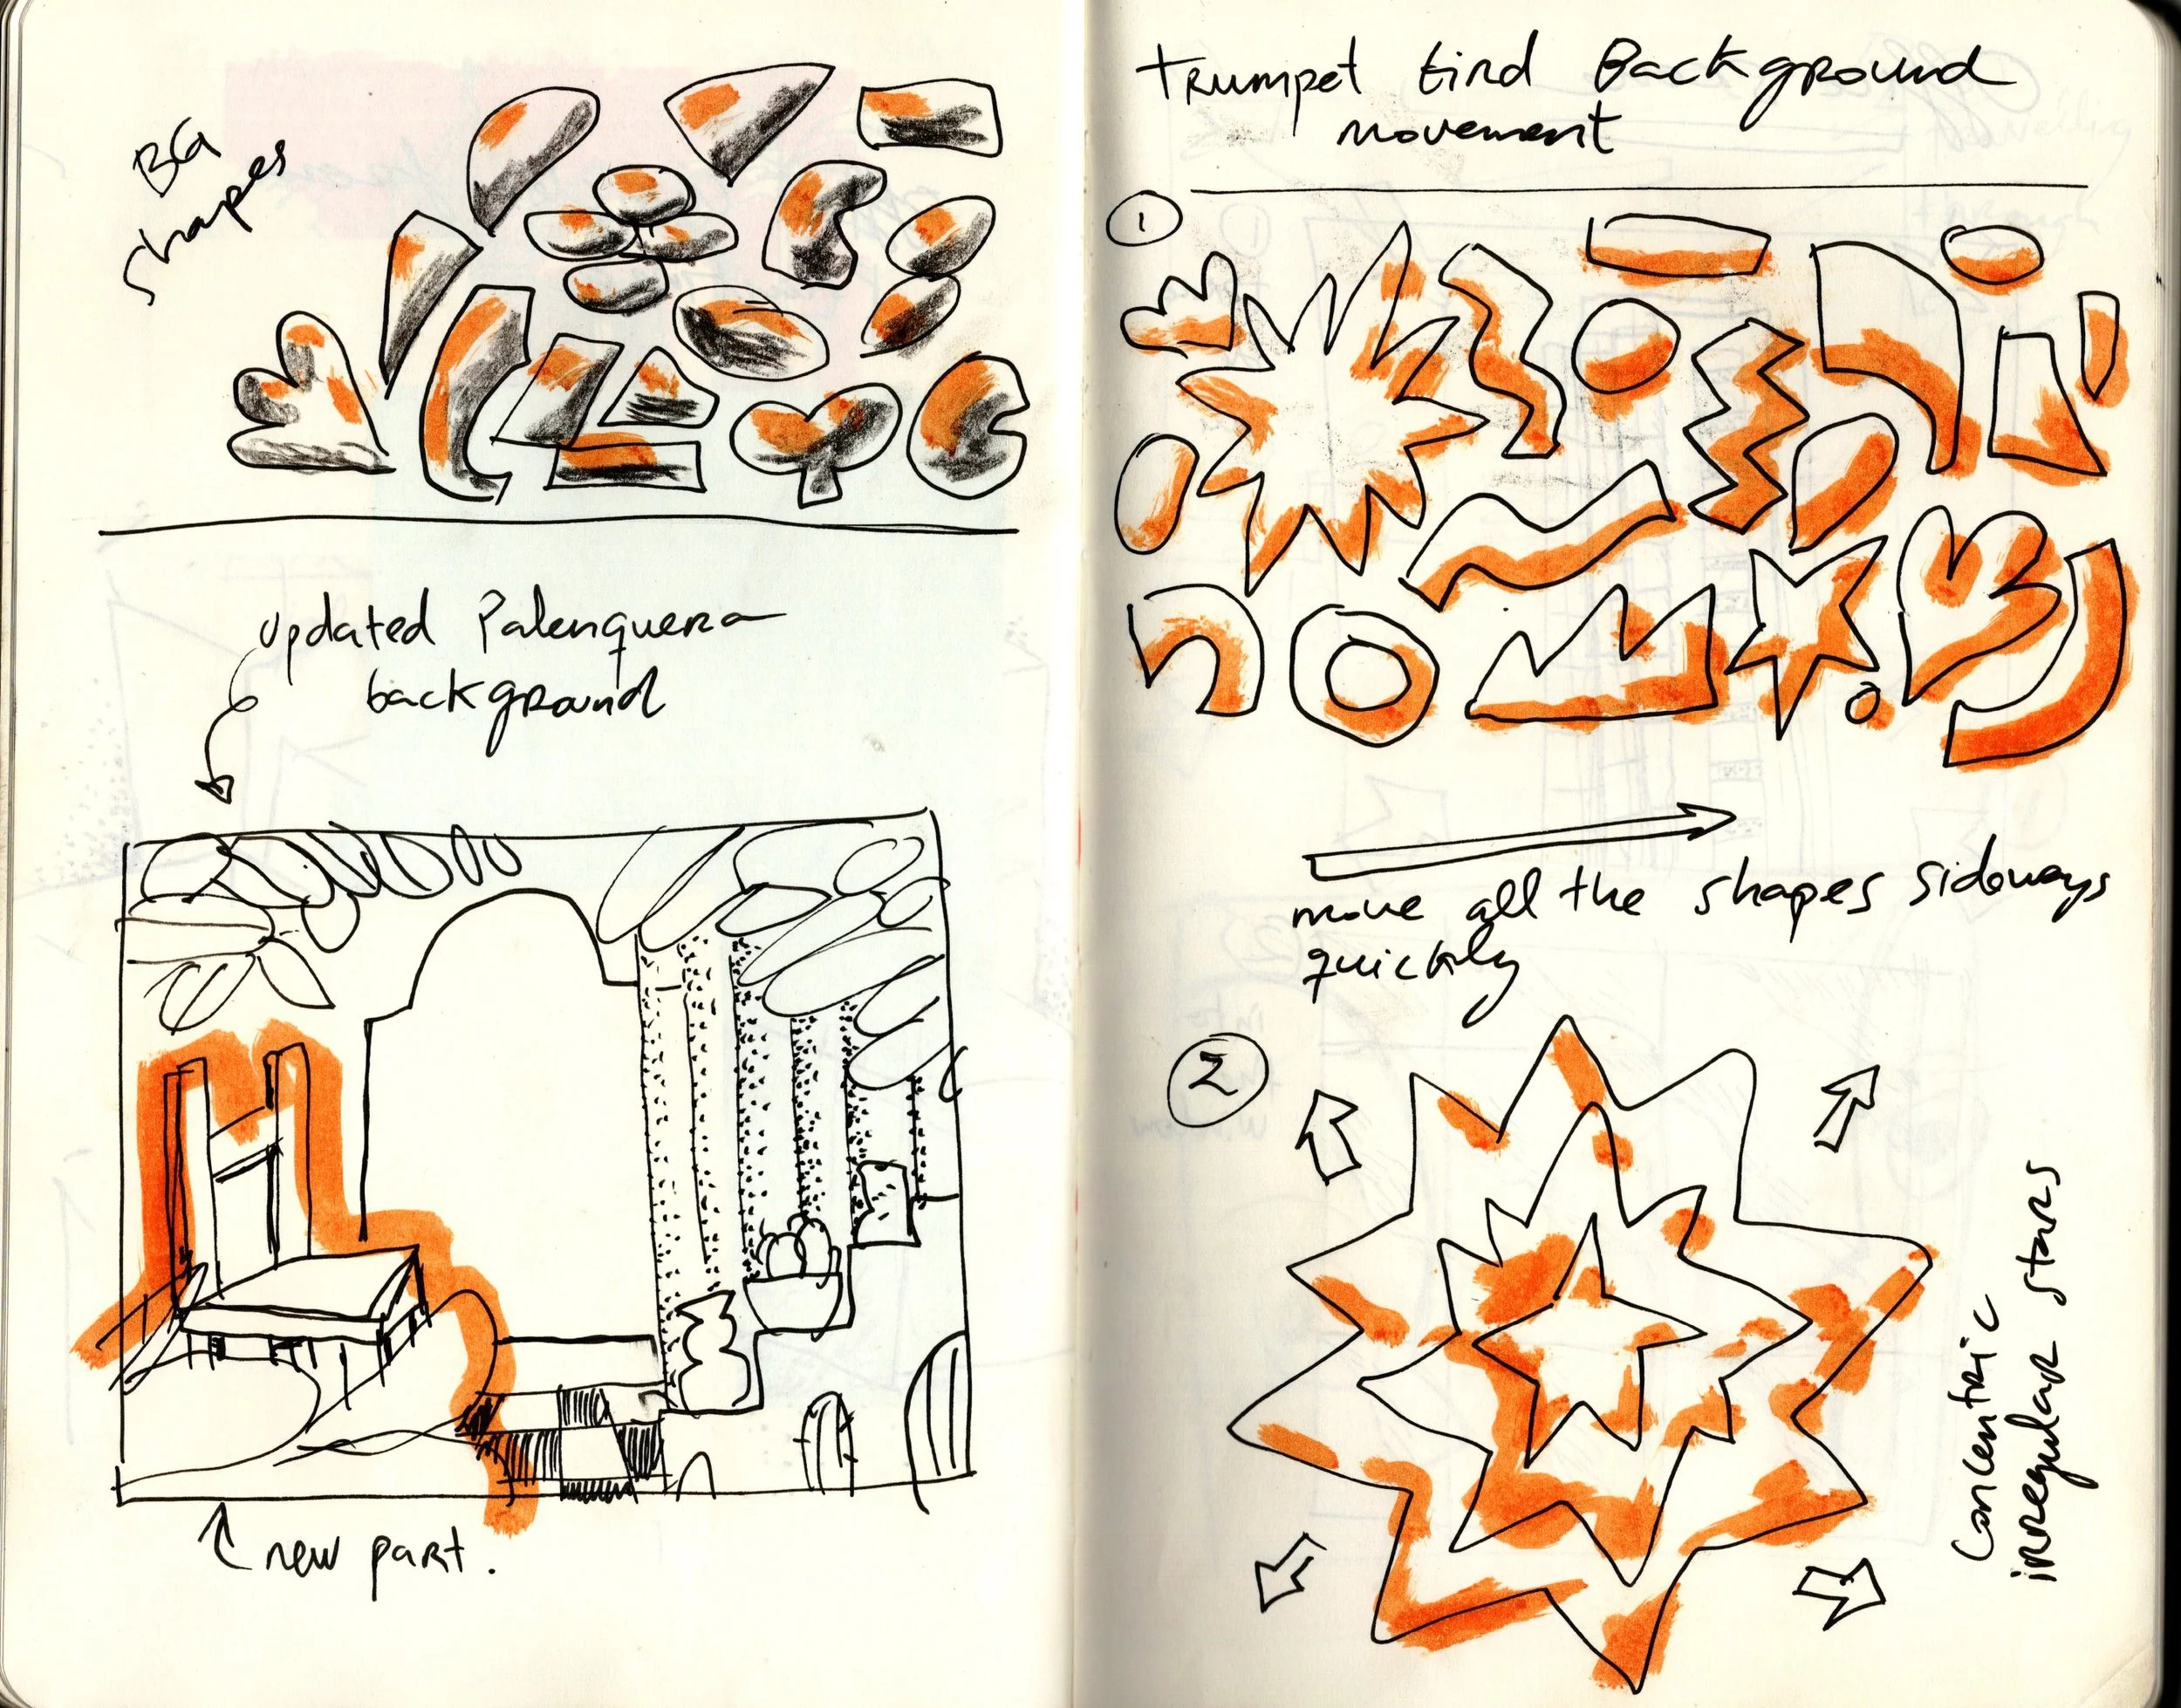 BG
shapes
updated Palenquera
background
new part.
Trumpet bird Background
movement
1
move all the shapes sideways
quickly
2
Concentric
irregular stars